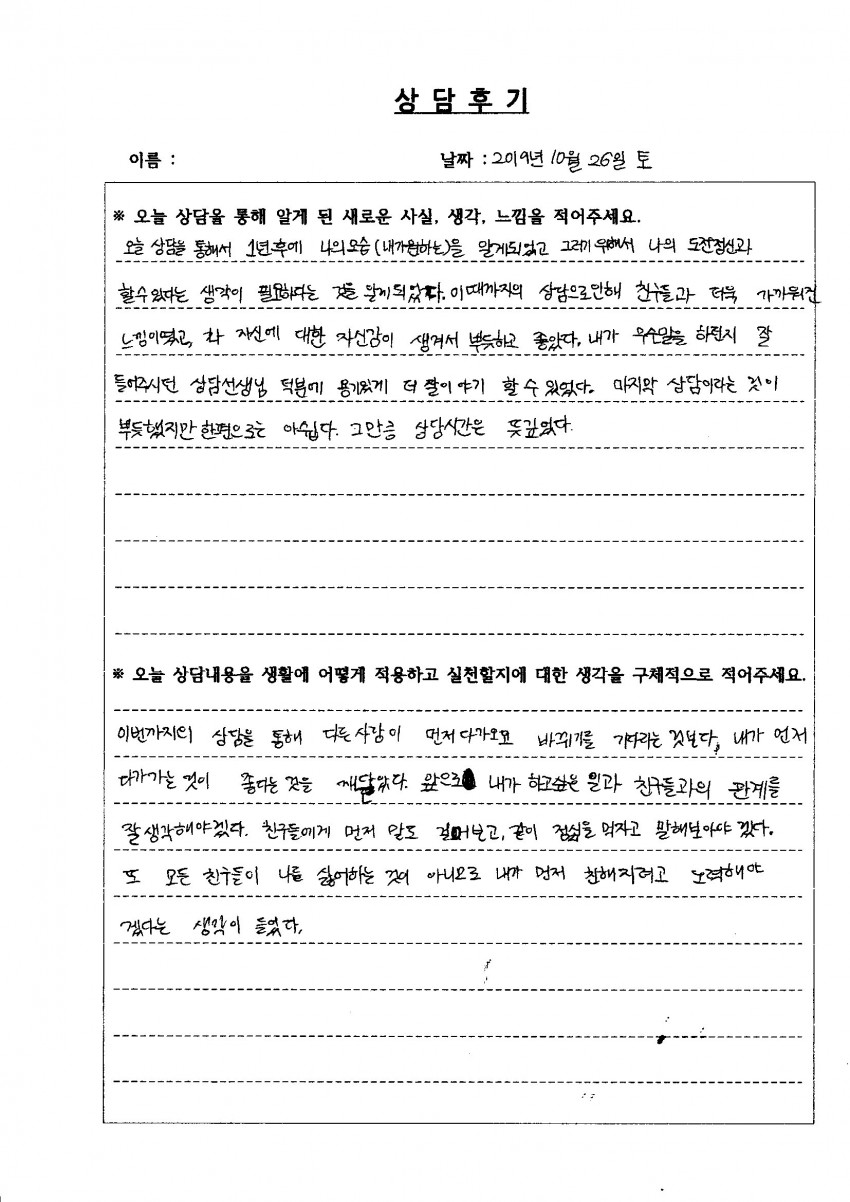 상 담 후 기
이름 :
날짜 : 2019년 10월 26일 토
※ 오늘 상담을 통해 알게 된 새로운 사실, 생각, 느낌을 적어주세요.
오늘 상담을 통해서 1년후에 나의모습(내가원하는)을 알게되었고 그러기 위해서 나의 도전정신과
할수있다는 생각이 필요하다는 것을 알게되었다. 이때까지의 상담으로인해 친구들과 더욱 가까워진
느낌이였고, 나 자신에 대한 자신감이 생겨서 뿌듯하고 좋았다. 내가 무슨말을 하던지 잘
들어주시던 상담선생님 덕분에 용기있게 더 잘이야기 할 수 있었다. 마지막 상담이라는 것이
뿌듯했지만 한편으로는 아쉽다. 그만큼 상담시간은 뜻깊었다.
※ 오늘 상담내용을 생활에 어떻게 적용하고 실천할지에 대한 생각을 구체적으로 적어주세요.
이번까지의 상담을 통해 다른사람이 먼저 다가오고 바뀌기를 기다리는 것보다, 내가 먼저
다가가는 것이 좋다는 것을 깨달았다. 앞으로 내가 하고싶은 일과 친구들과의 관계를
잘 생각해야겠다. 친구들에게 먼저 말도 걸어보고, 같이 점심을 먹자고 말해보아야 겠다.
또 모든 친구들이 나를 싫어하는 것이 아니므로 내가 먼저 친해지려고 노력해야
겠다는 생각이 들었다.